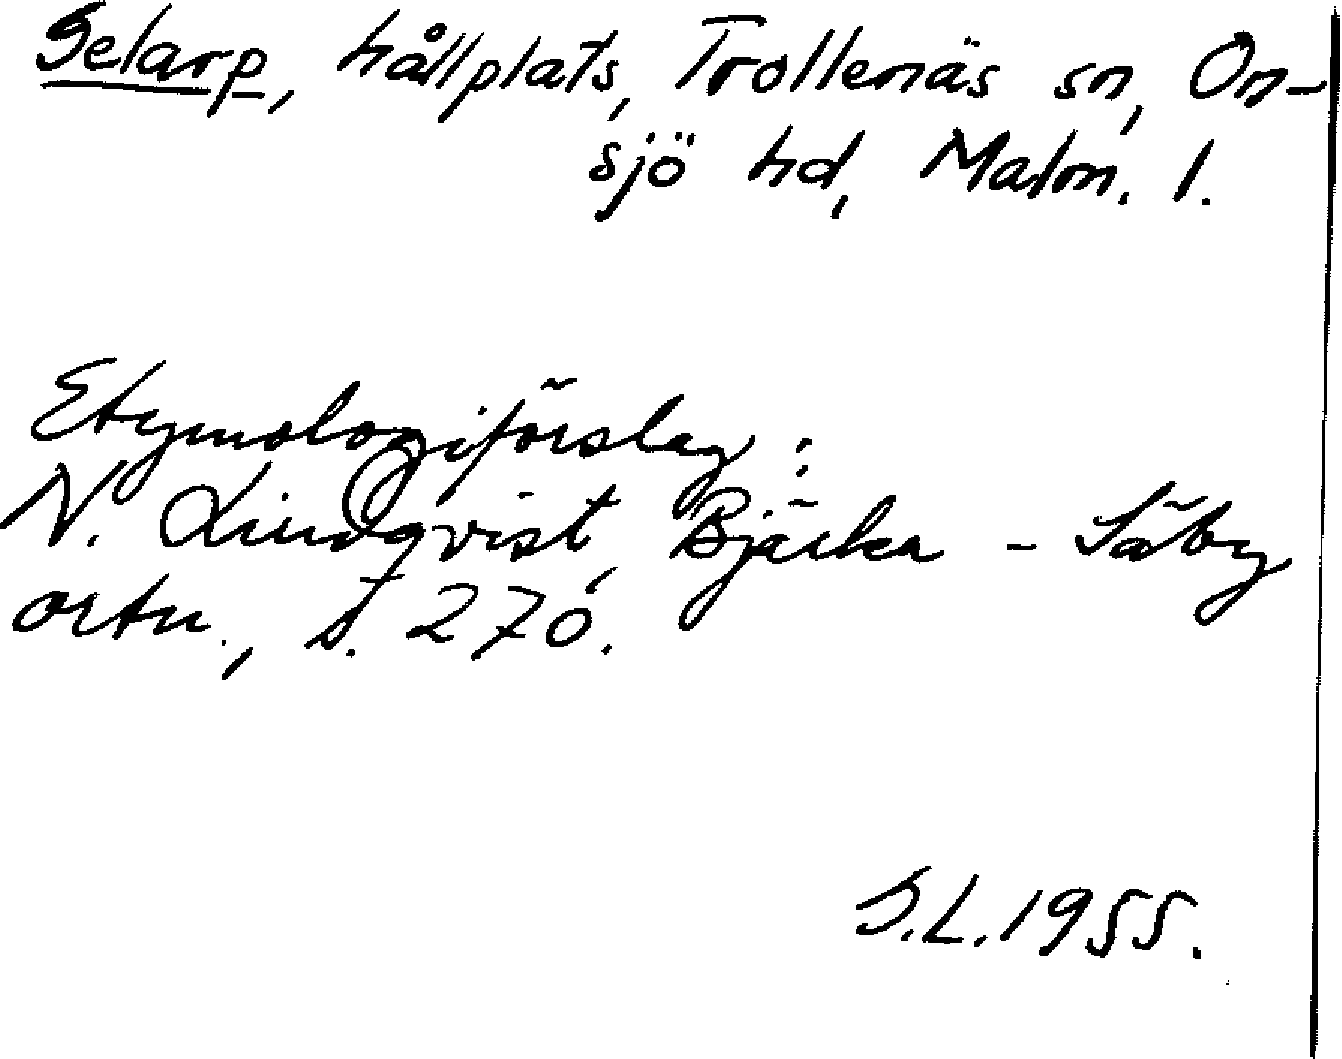 Selarp, hållplats, Trollenäs sn, On-
sjö hd, Malm. l.
Etymologiförslag:
N. Lindqvist, Bjärka-Säby
ortn., s. 270.
S.L. 1955.